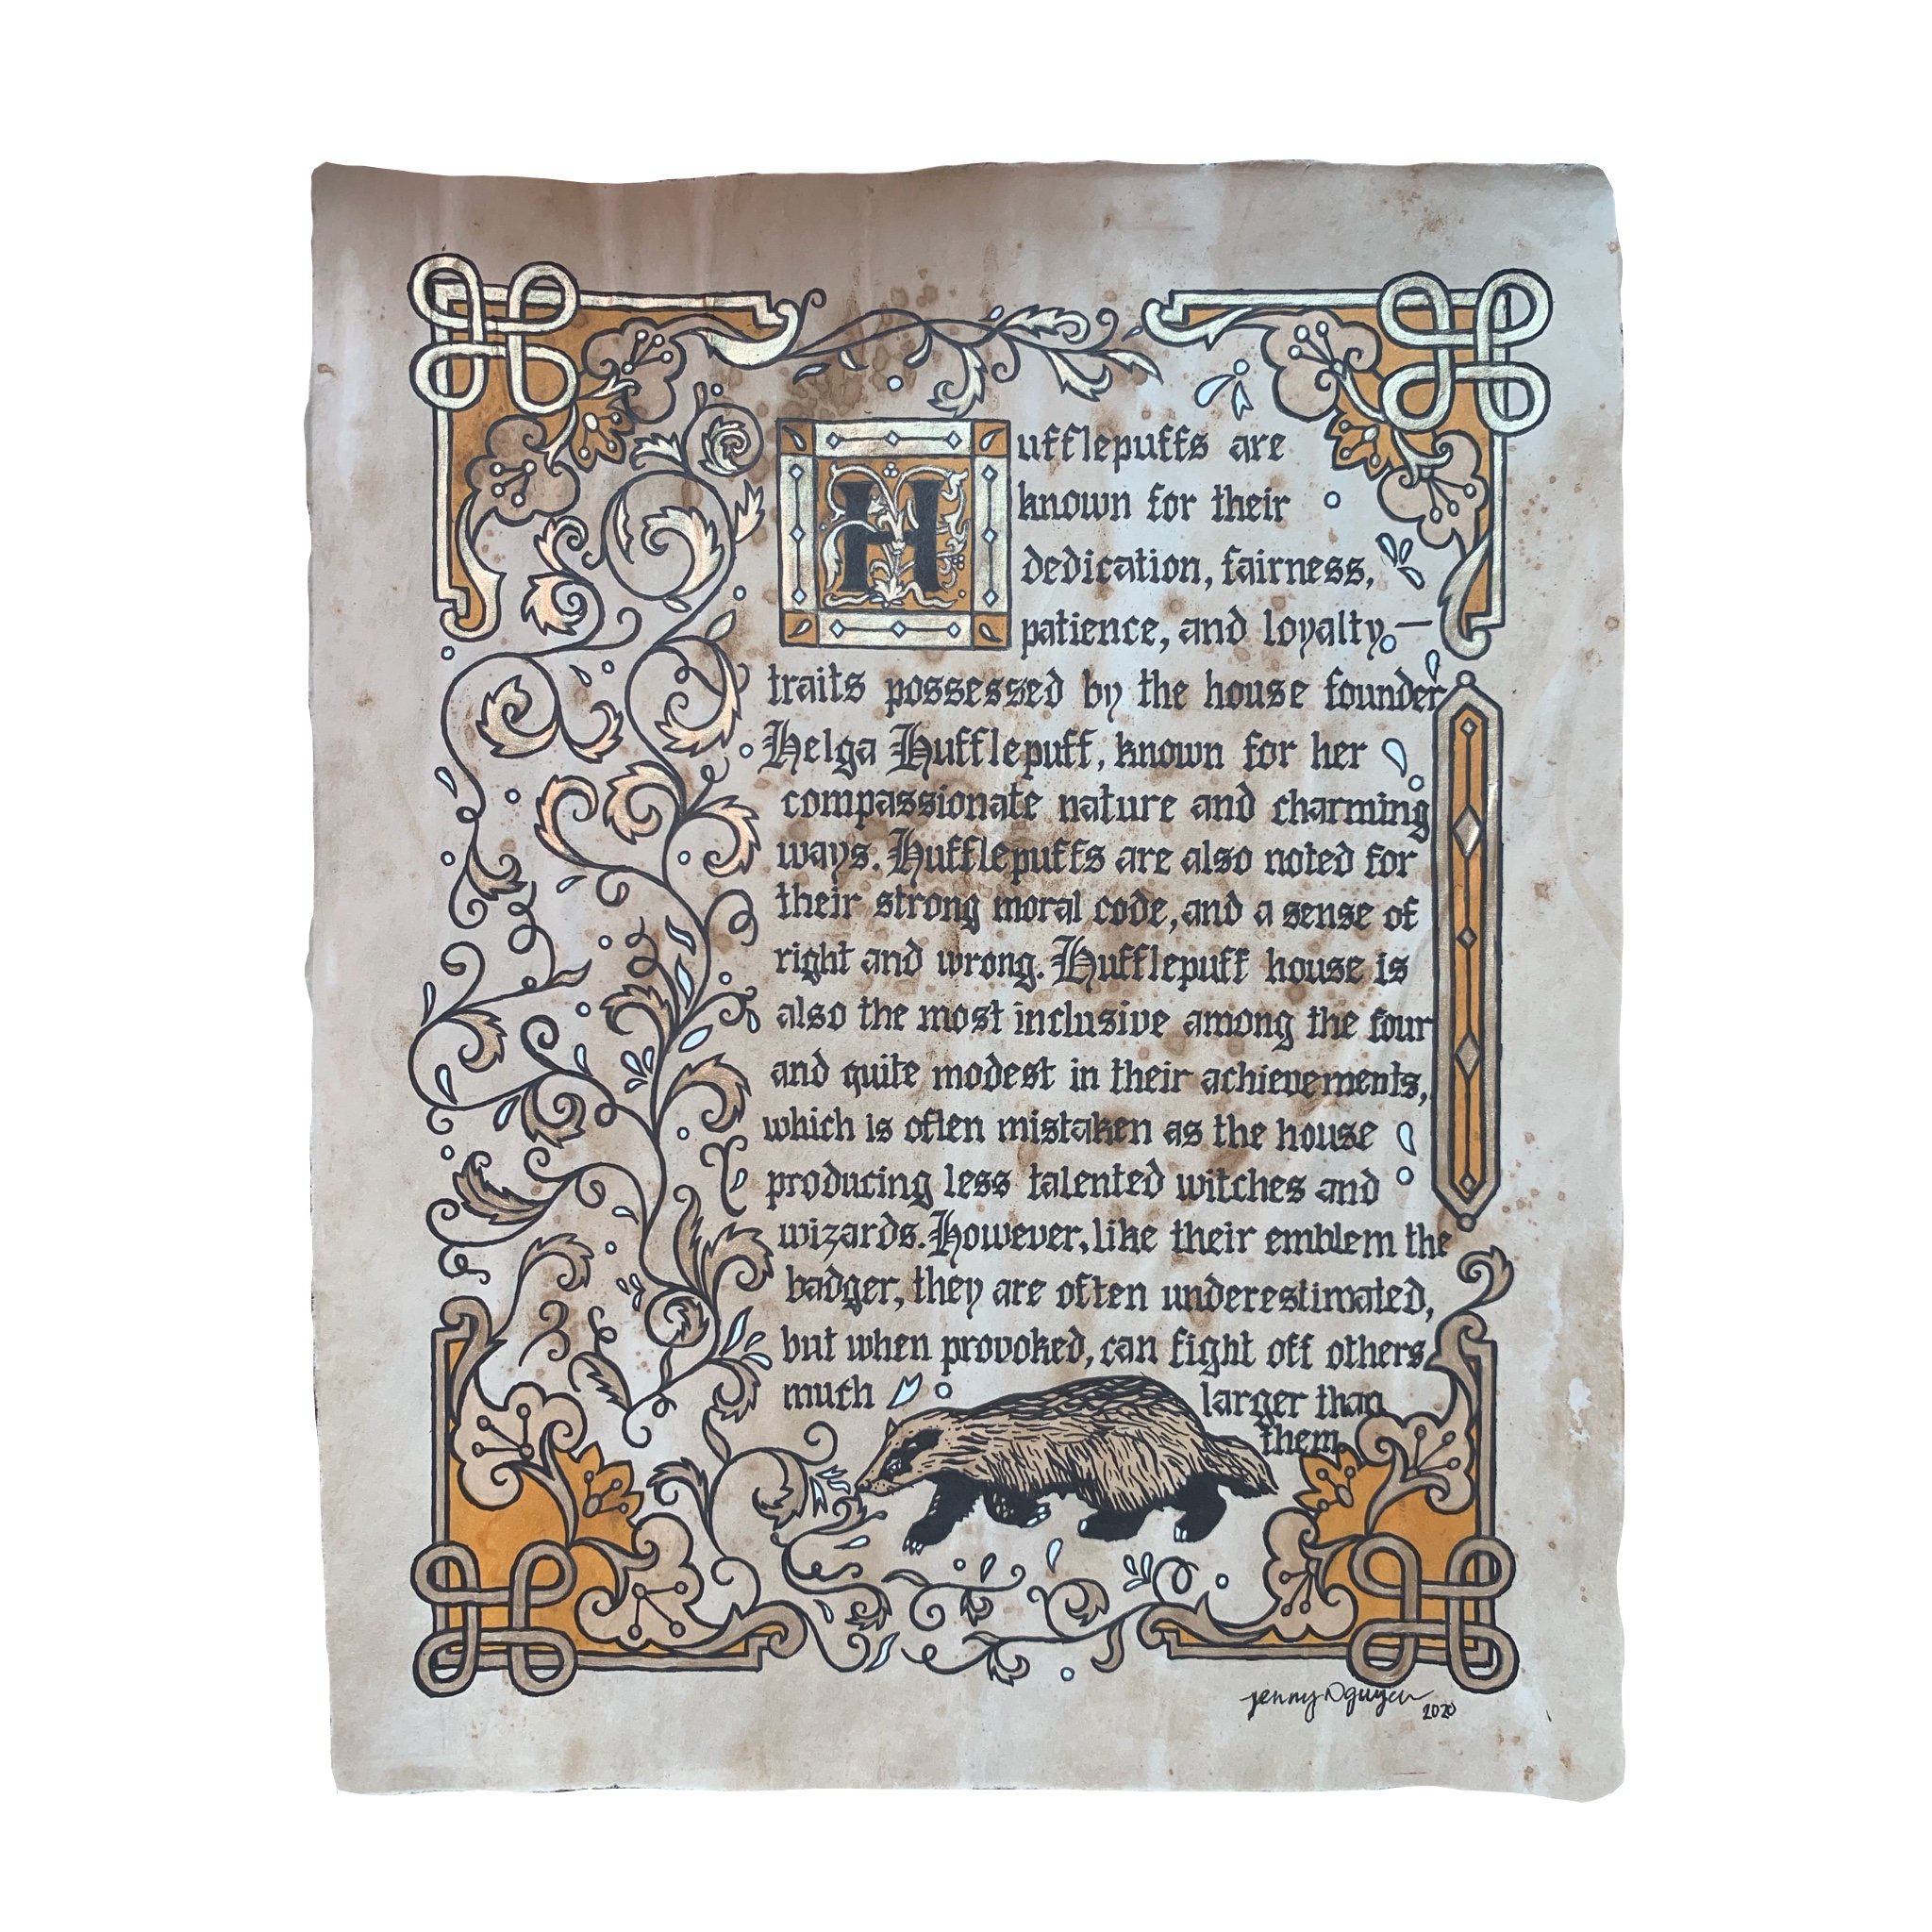 Hufflepuffs are
known for their
dedication, fairness,
patience, and loyalty.—
traits possessed by the house founder
Helga Hufflepuff, known for her
compassionate nature and charming
ways. Hufflepuffs are also noted for
their strong moral code, and a sense of
right and wrong. Hufflepuff house is
also the most inclusive among the four
and quite modest in their achievements,
which is often mistaken as the house
producing less talented witches and
wizards. However, like their emblem the
badger, they are often underestimated,
but when provoked, can fight off others
much larger than
them.
Jenny Nguyen
2020